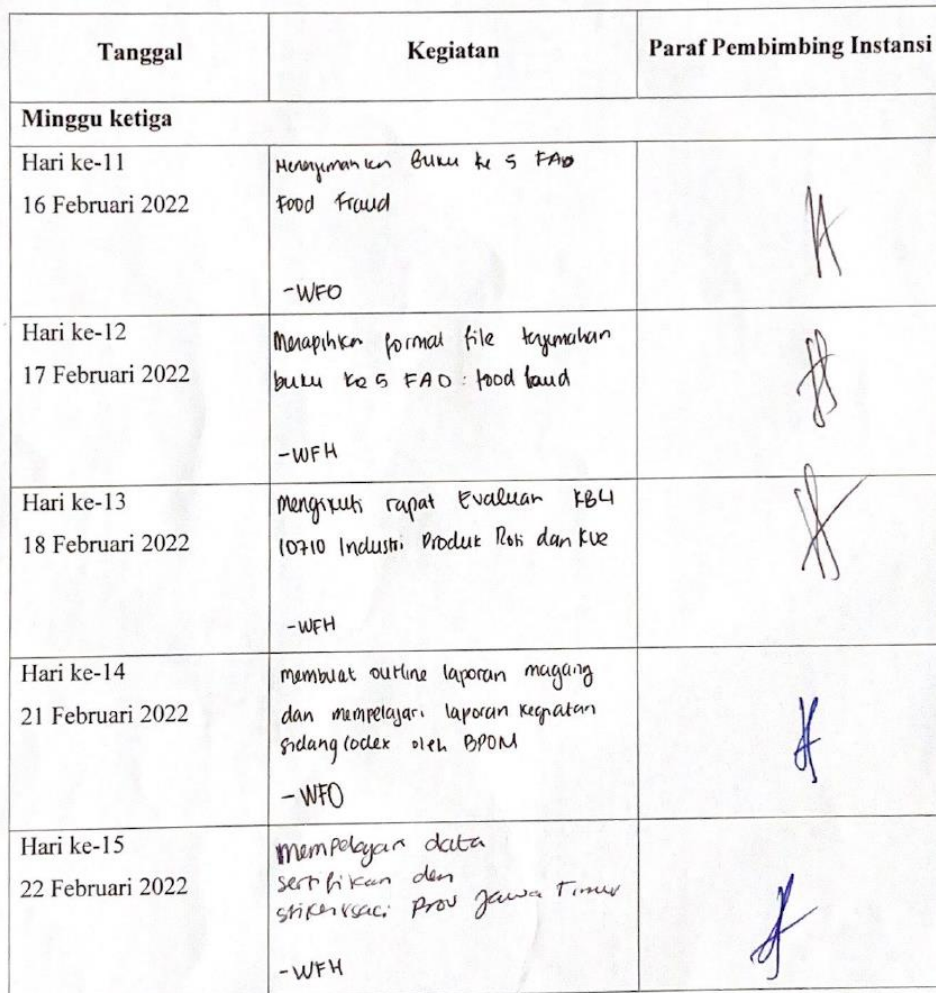 Tanggal Kegiatan Paraf Pembimbing Instansi
Minggu ketiga
Hari ke-11
16 Februari 2022
Menerjemahkan Buku ke 5 FAO
Food Fraud
-WFO
Hari ke-12
17 Februari 2022
Merapihkan format file terjemahan
buku ke 5 FAO : food fraud
-WFH
Hari ke-13
18 Februari 2022
Mengikuti rapat Evaluasi KBLI
10710 Industri Produk Roti dan Kue
-WFH
Hari ke-14
21 Februari 2022
membuat outline laporan magang
dan mempelajari laporan kegiatan
sidang codex oleh BPOM
-WFO
Hari ke-15
22 Februari 2022
mempelajari data
dan
Prov Jawa Timur
-WFH